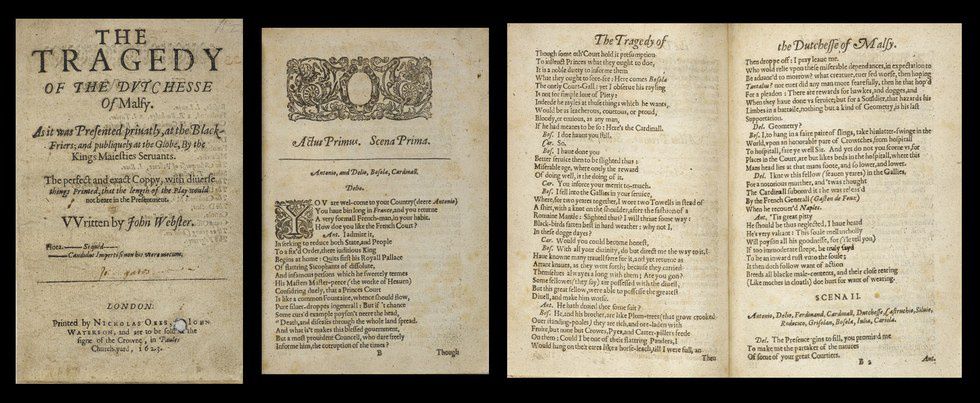 THE
TRAGEDY
OF THE DVTCHESSE
Of Malfy.
As it was Presented priuatly, at the Black-
Friers; and publiquely at the Globe, By the
Kings Maiesties Seruants.
The perfect and exact Coppy, with diuerse
things Printed, that the length of the Play would
not beare in the Presentment.
VVritten by John Webster.
Hora.——Si quid——
——Candidus Imperti si non his vtere mecum.
LONDON:
Printed by NICHOLAS OKES, IOHN
WATERSON, and are to be sold at the
signe of the Crowne, in Paules
Church-yard, 1623.
Actus Primus. Scena Prima.
Antonio, and Delio, Bosola, Cardinall.
Delio.
YOV are wel-come to your Country (deere Antonio)
You haue bin long in France, and you returne
A very formall French-man, in your habit.
How doe you like the French Court?
Ant. I admire it,
In seeking to reduce both State, and People
To a fix'd Order, there iuditious King
Begins at home: Quits first his Royall Pallace
Of flattring Sicophants, of dissolute,
And infamous persons which he sweetely termes
His Masters Master-peece (the worke of Heauen)
Considring duely, that a Princes Court
Is like a common Fountaine, whence should flow,
Pure siluer-droppes in generall: But if't chance
Some curs'd example poyson't neere the head,
" Death, and diseases through the whole land spread.
And what is't makes this blessed gouernment,
But a most prouident Councell, who dare freely
Informe him, the corruption of the times?
B Though
The Tragedy of
Though some oth' Court hold it presumption
To instruct Princes what they ought to doe,
It is a noble duety to informe them
What they ought to fore-see: Here comes Bosola
The onely Court-Gall: yet I obserue his rayling
Is not for simple loue of Piety:
Indeede he rayles at those things which he wants,
Would be as leacherous, couetous, or proud,
Bloody, or enuious, as any man,
If he had meanes to be so: Here's the Cardinall.
Bos. I doe haunt you still.
Car. So.
Bos. I haue done you
Better seruice then to be slighted thus:
Miserable age, where onely the reward
Of doing well, is the doing of it.
Car. You inforce your merrit to much.
Bos. I fell into the Gallies in your seruice,
Where, for two yeares together, I wore two Towells in stead of
A shirt, with a knot on the shoulder, after the fashion of a
Romaine Mantle: Slighted thus? I will thriue some way:
Black-birds fatten best in hard weather: why not I,
In these dogge dayes?
Car. Would you could become honest,
Bos. With all your diuinity, do but direct me the way to it, I
Haue knowne many trauell farre for it, and yet returne as
Arrant knaues, as they went forth; because they carried
Themselues alwayes along with them; Are you gon?
Some fellowes (they say) are possessed with the diuell,
But this great fellow, were able to possesse the greatest
Diuell, and make him worse.
Ant. He hath denied thee some suit?
Bos. He, and his brother, are like Plum-trees (that grow crooked
Ouer standing-pooles) they are rich, and ore-laden with
Fruite, but none but Crowes, Pyes, and Catter-pillers feede
On them: Could I be one of their flattring Panders, I
Would hang on their eares like a horse-leach, till I were full, an
Then
the Dutchesse of Malfy.
Then droppe off: I pray leaue me.
Who would relie vpon these miserable dependances, in expectation to
Be aduanc'd to morrow? what creature, euer fed worse, then hoping
Tantalus? nor euer did any man more fearefully, then he that hop'd
For a pleadon: There are rewards for hawkes, and dogges, and
When they haue done vs seruice; but for a Souldier, that hazards his
Limbes in a battaile, nothing but a kind of Geometry, is his last
Supportation.
Del. Geometry?
Bos. I, to hang in a faire paire of slings, take his latter-swinge in the
World, vpon an honorable paire of Crowtches, from hospitall
To hospitall, fare ye well Sir. And yet do not you scorne vs, for
Places in the Court, are but likes beds in the hospitall, where this
Mans head lies at that mans foote, and so lower, and lower.
Del. I knew this fellow (seauen yeares) in the Gallies,
For a notorious murther, and 'twas thought
The Cardinall suborn'd it: he was releas'd
By the French Generall (Gaston de Foux)
When he recouer'd Naples.
Ant. 'Tis great pitty
He should be thus neglected, I haue heard
He's very valiant: This foule mellancholly
Will poyson all his goodnesse, for (i'le tell you)
If too immoderate sleepe, be truly sayd
To be an inward rust vnto the soule;
It then doth follow want of action
Breeds all blacke male-contents, and their close rearing
(Like mothes in cloath) doe hurt for want of wearing.
SCENA II.
Antonio, Delio, Ferdinand, Cardinall, Dutchesse, Castruchio, Siluio,
Rodorico, Grisolan, Bosola, Iulia, Cariola.
Del. The Presence 'gins to fill, you promis'd me
To make me the partaker of the natures
Of some of your great Courtiers.
B 2 Ant.